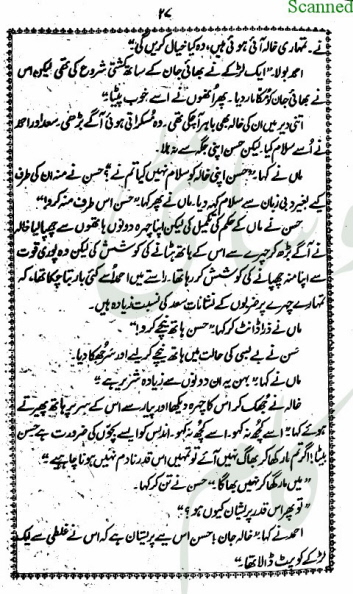 Scanned
۲۷
نے۔ تمہاری خالہ آئی ہوئی ہیں، وہ کیا خیال کریں گی“
احمد بولا ”ایک لڑکے نے بھائی جان کے ساتھ کشتی شروع کی تھی لیکن اس
نے بھائی جان کو مُکا مار دیا۔ پھر انھوں نے اسے خوب پیٹا“
اتنی دیر میں ان کی خالہ بھی باہر آ چکی تھی۔ وہ مسکراتی ہوئی آگے بڑھی۔ سعد اور احمد
نے اُسے سلام کیا لیکن حسن اپنی جگہ سے نہ ہلا۔
ماں نے کہا ”حسن اپنی خالہ کو سلام نہیں کیا تم نے؟“ حسن نے منہ ان کی طرف
کیے بغیر دبی زبان سے سلام کہہ دیا۔ ماں نے پھر کہا ”حسن اس طرف منہ کرو!“
حسن نے ماں کے حکم کی تعمیل کی لیکن اپنا چہرہ دونوں ہاتھوں سے چھپا لیا خالہ
نے آگے بڑھ کر چہرے سے اس کے ہاتھ ہٹانے کی کوشش کی لیکن وہ پوری قوت
سے اپنا منہ چھپانے کی کوشش کر رہا تھا۔ راستے میں احمد اُسے کئی بار بتا چکا تھا، کہ
تمہارے چہرے پر ضربوں کے نشانات سعد کی نسبت زیادہ ہیں۔
ماں نے ذرا ڈانٹ کر کہا ”حسن ہاتھ نیچے کر دو!“
حسن نے بے بسی کی حالت میں ہاتھ نیچے کر لیے اور سر جھکا دیا۔
ماں نے کہا ”بہن یہ ان دونوں سے زیادہ شریر ہے“
خالہ نے جھک کر اس کا چہرہ دیکھا اور پیار سے اس کے سر پر ہاتھ پھیرتے
ہوئے کہا ”اسے کچھ نہ کہو۔ اسے کچھ نہ کہو۔ اندلس کو ایسے بچوں کی ضرورت ہے حسن
بیٹا! اگر تم مار کھا کر بھاگ نہیں آئے تو تمہیں اس قدر نادم نہیں ہونا چاہیے“
”میں مار کھا کر نہیں بھاگا“ حسن نے تن کر کہا۔
”تو پھر اس قدر پریشان کیوں ہو؟“
احمد نے کہا ”خالہ جان! حسن اس لیے پریشان ہے کہ اس نے غلطی سے ایک
لڑکے کو پیٹ ڈالا تھا“